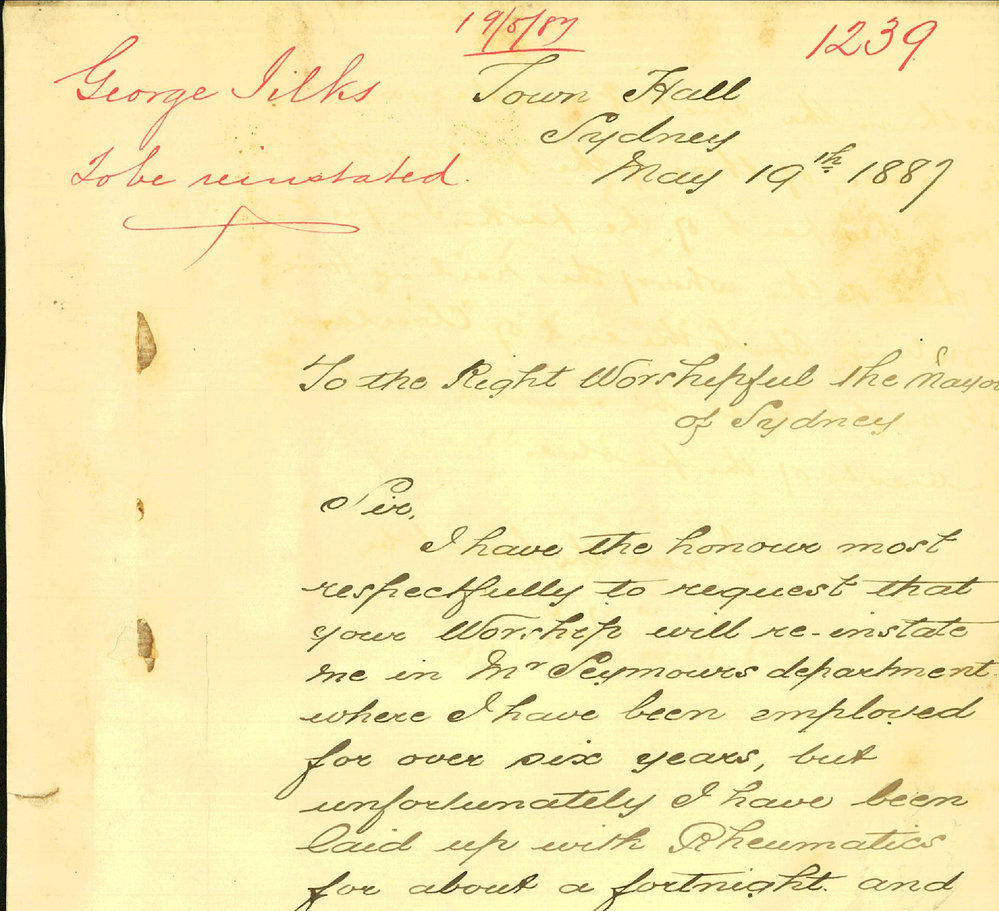 19/5/87
1239
George Jilks
To be reinstated
Town Hall
Sydney
May 19th 1887
To the Right Worshipful the Mayor
of Sydney
Sir,
I have the honour most
respectfully to request that
your Worship will re-instate
me in Mr Seymours department
where I have been employed
for over six years, but
unfortunately I have been
laid up with Rheumatics
for about a fortnight and